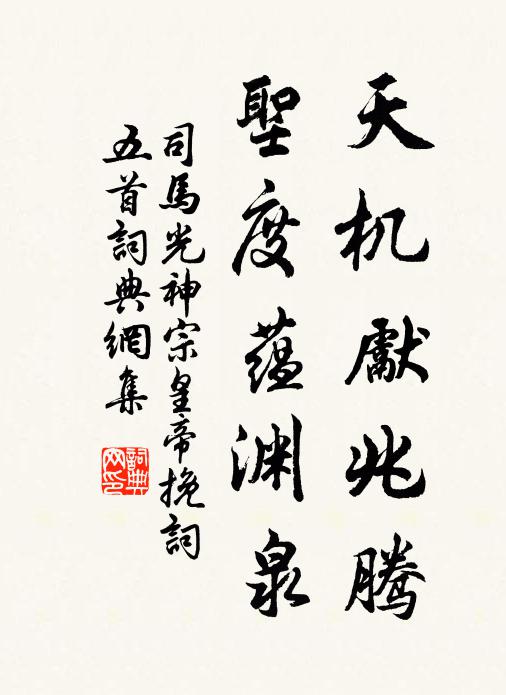 天机獻兆騰
聖度蕴渊泉
司馬光神宗皇帝挽詞
五首詞典網集
詞典网印